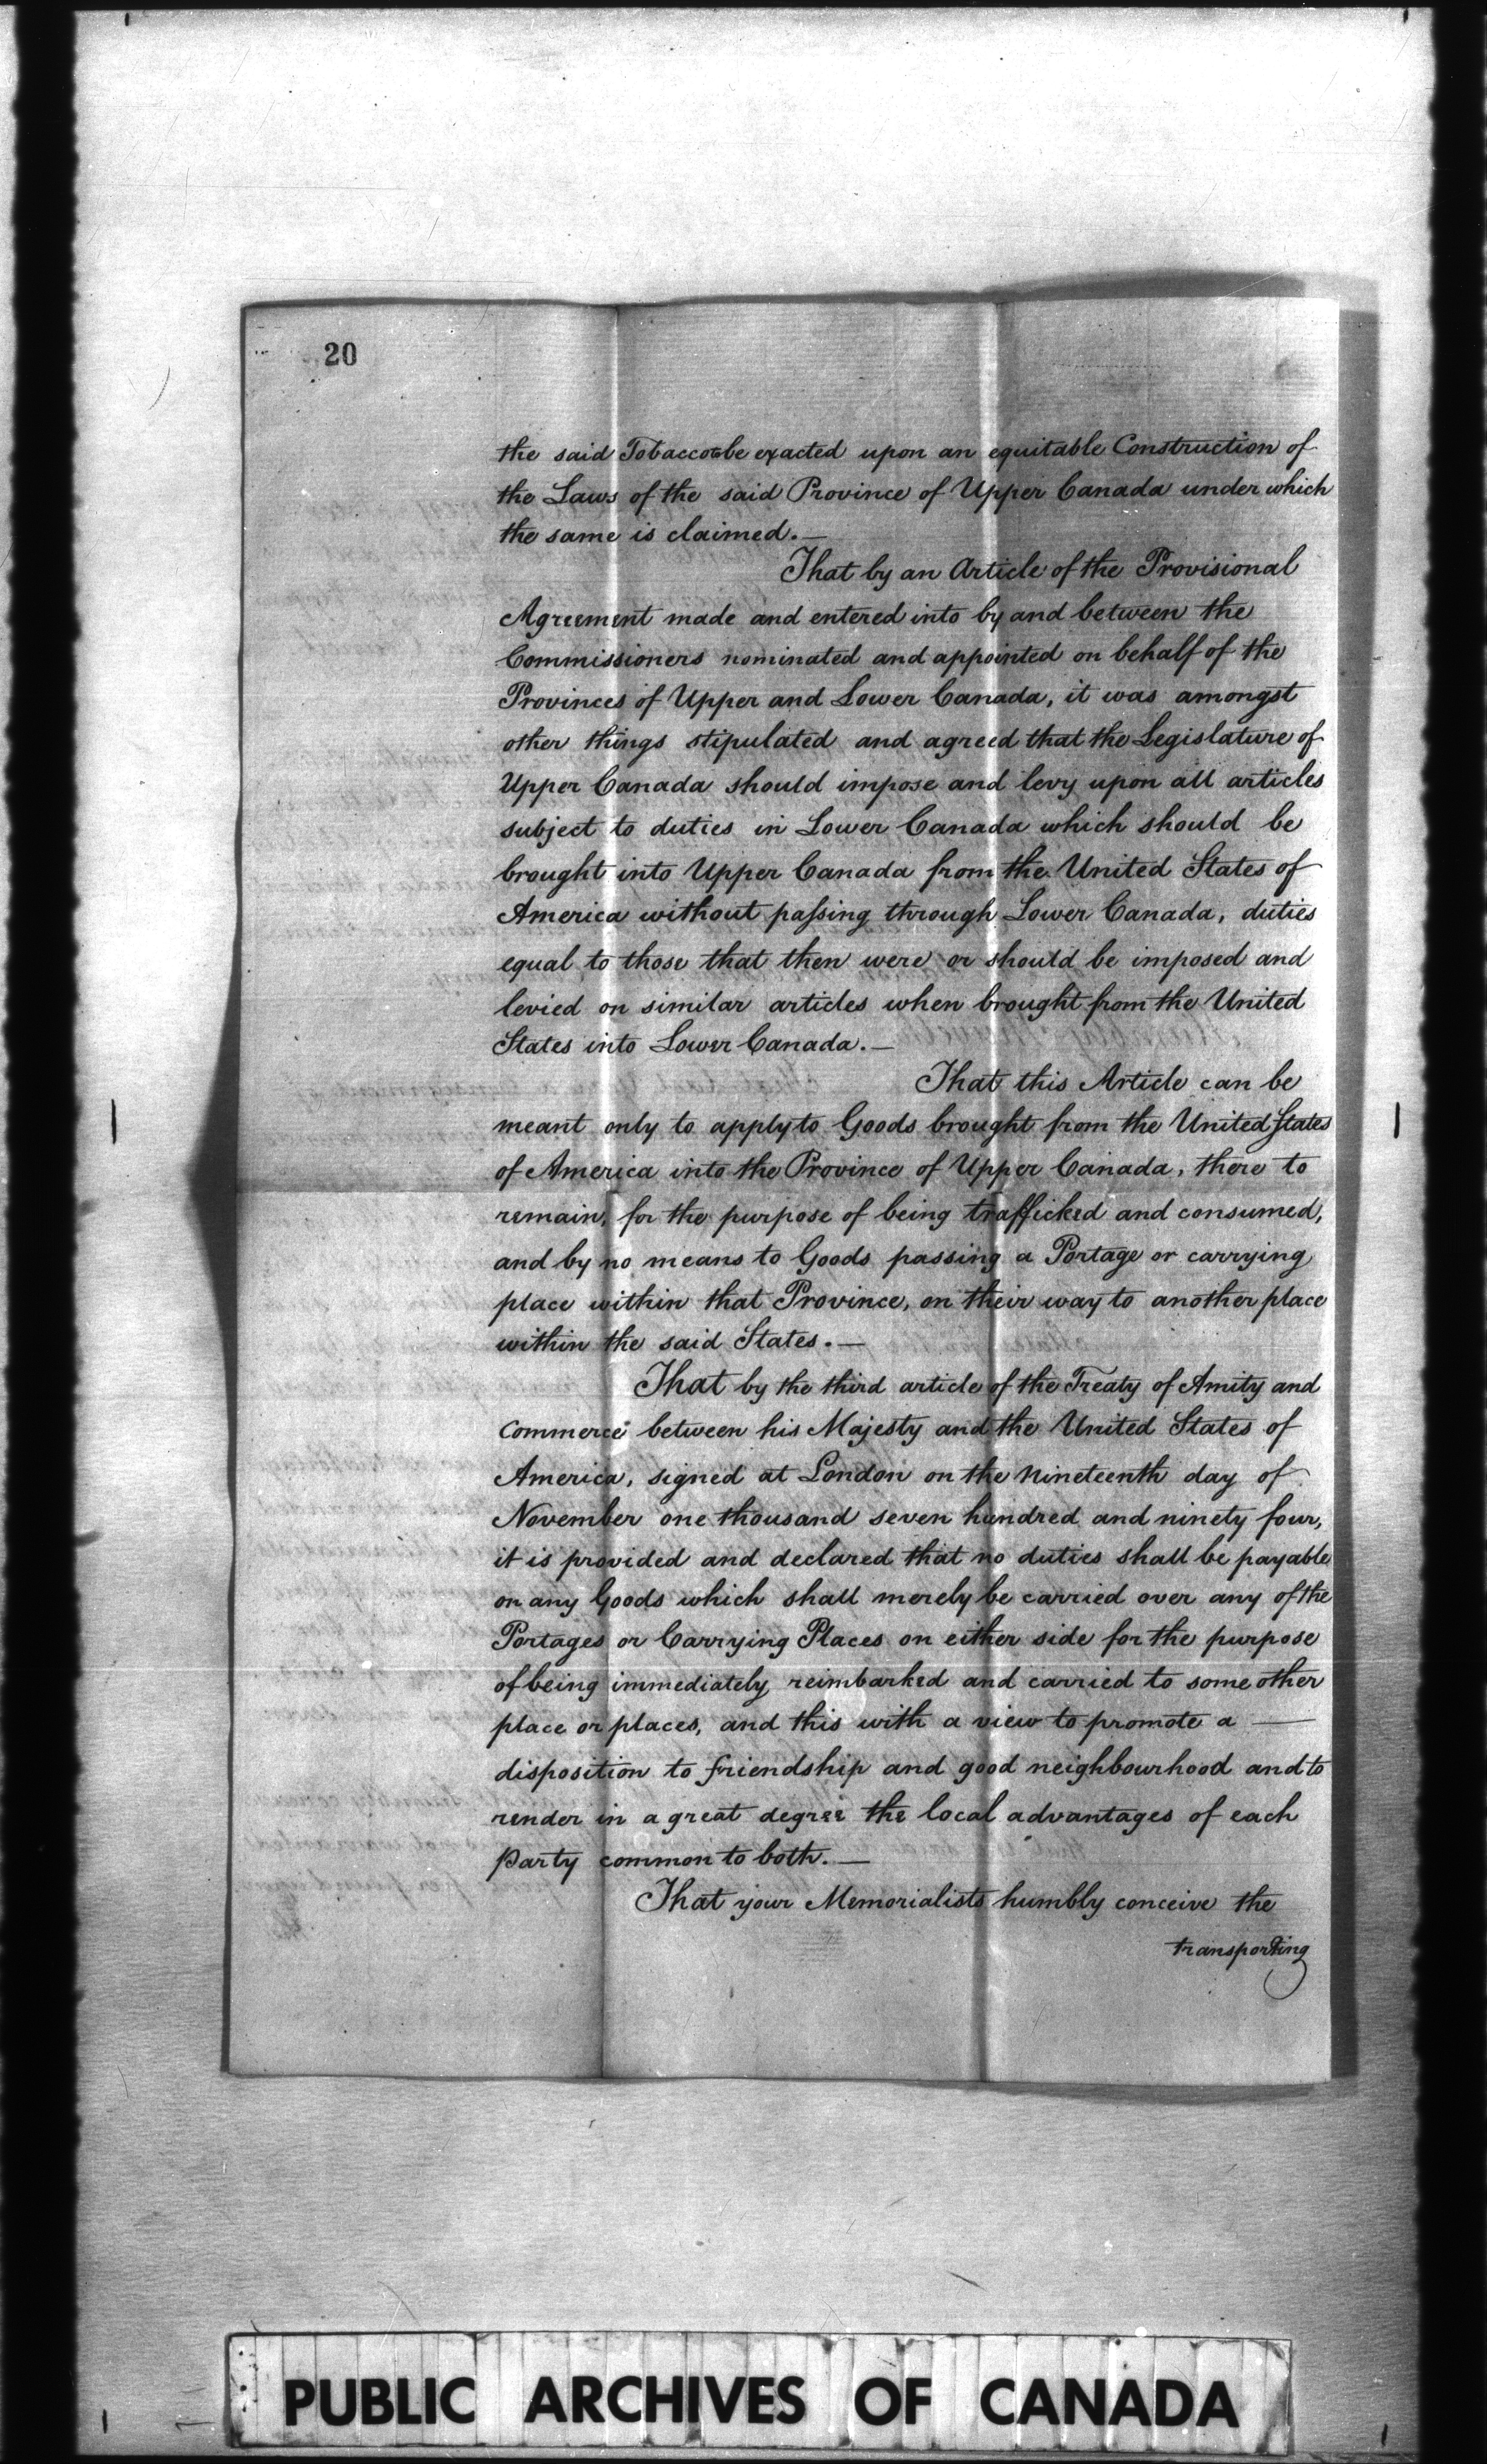 20
the said Tobacco be exacted upon an equitable Construction of
the Laws of the said Province of Upper Canada under which
the same is claimed.—
That by an Article of the Provisional
Agreement made and entered into by and between the
Commissioners nominated and appointed on behalf of the
Provinces of Upper and Lower Canada, it was amongst
other things stipulated and agreed that the Legislature of
Upper Canada should impose and levy upon all articles
subject to duties in Lower Canada which should be
brought into Upper Canada from the United States of
America without passing through Lower Canada, duties
equal to those that then were or should be imposed and
levied on similar articles when brought from the United
States into Lower Canada.—
That this Article can be
meant only to apply to Goods brought from the United States
of America into the Province of Upper Canada, there to
remain, for the purpose of being trafficked and consumed,
and by no means to Goods passing a Portage or carrying
place within that Province, on their way to another place
within the said States.—
That by the third article of the Treaty of Amity and
Commerce between his Majesty and the United States of
America, signed at London on the Nineteenth day of
November one thousand seven hundred and ninety four,
it is provided and declared that no duties shall be payable
on any Goods which shall merely be carried over any of the
Portages or Carrying Places on either side for the purpose
of being immediately reimbarked and carried to some other
place or places, and this with a view to promote a —
disposition to friendship and good neighbourhood and to
render in a great degree the local advantages of each
party common to both.—
That your Memorialists humbly conceive the
transporting
PUBLIC ARCHIVES OF CANADA